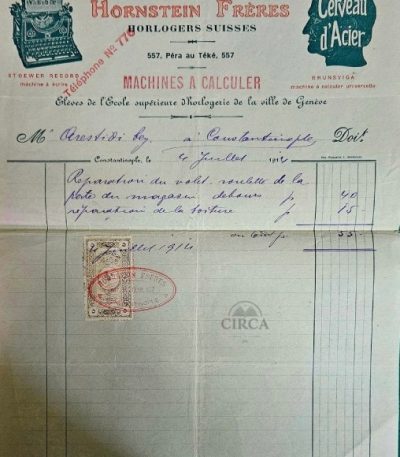 HORNSTEIN FRÈRES
HORLOGERS SUISSES
557, Péra au Téké, 557
Téléphone No 776
MACHINES A CALCULER
Cerveau d'Acier
STOEWER RECORD
machine à écrire
BRUNSVIGA
machine à calculer universelle
Elèves de l'Ecole supérieure d'Horlogerie de la ville de Genève
Mr Arestidi bey à Constantinople, Doit
Constantinople, le 4 Juillet 1914
Réparation du volet roulette de la
porte du magasin debours p 40
réparation de la toiture p 15
au total p 55
1914
HORNSTEIN FRÈRES
CIRCA